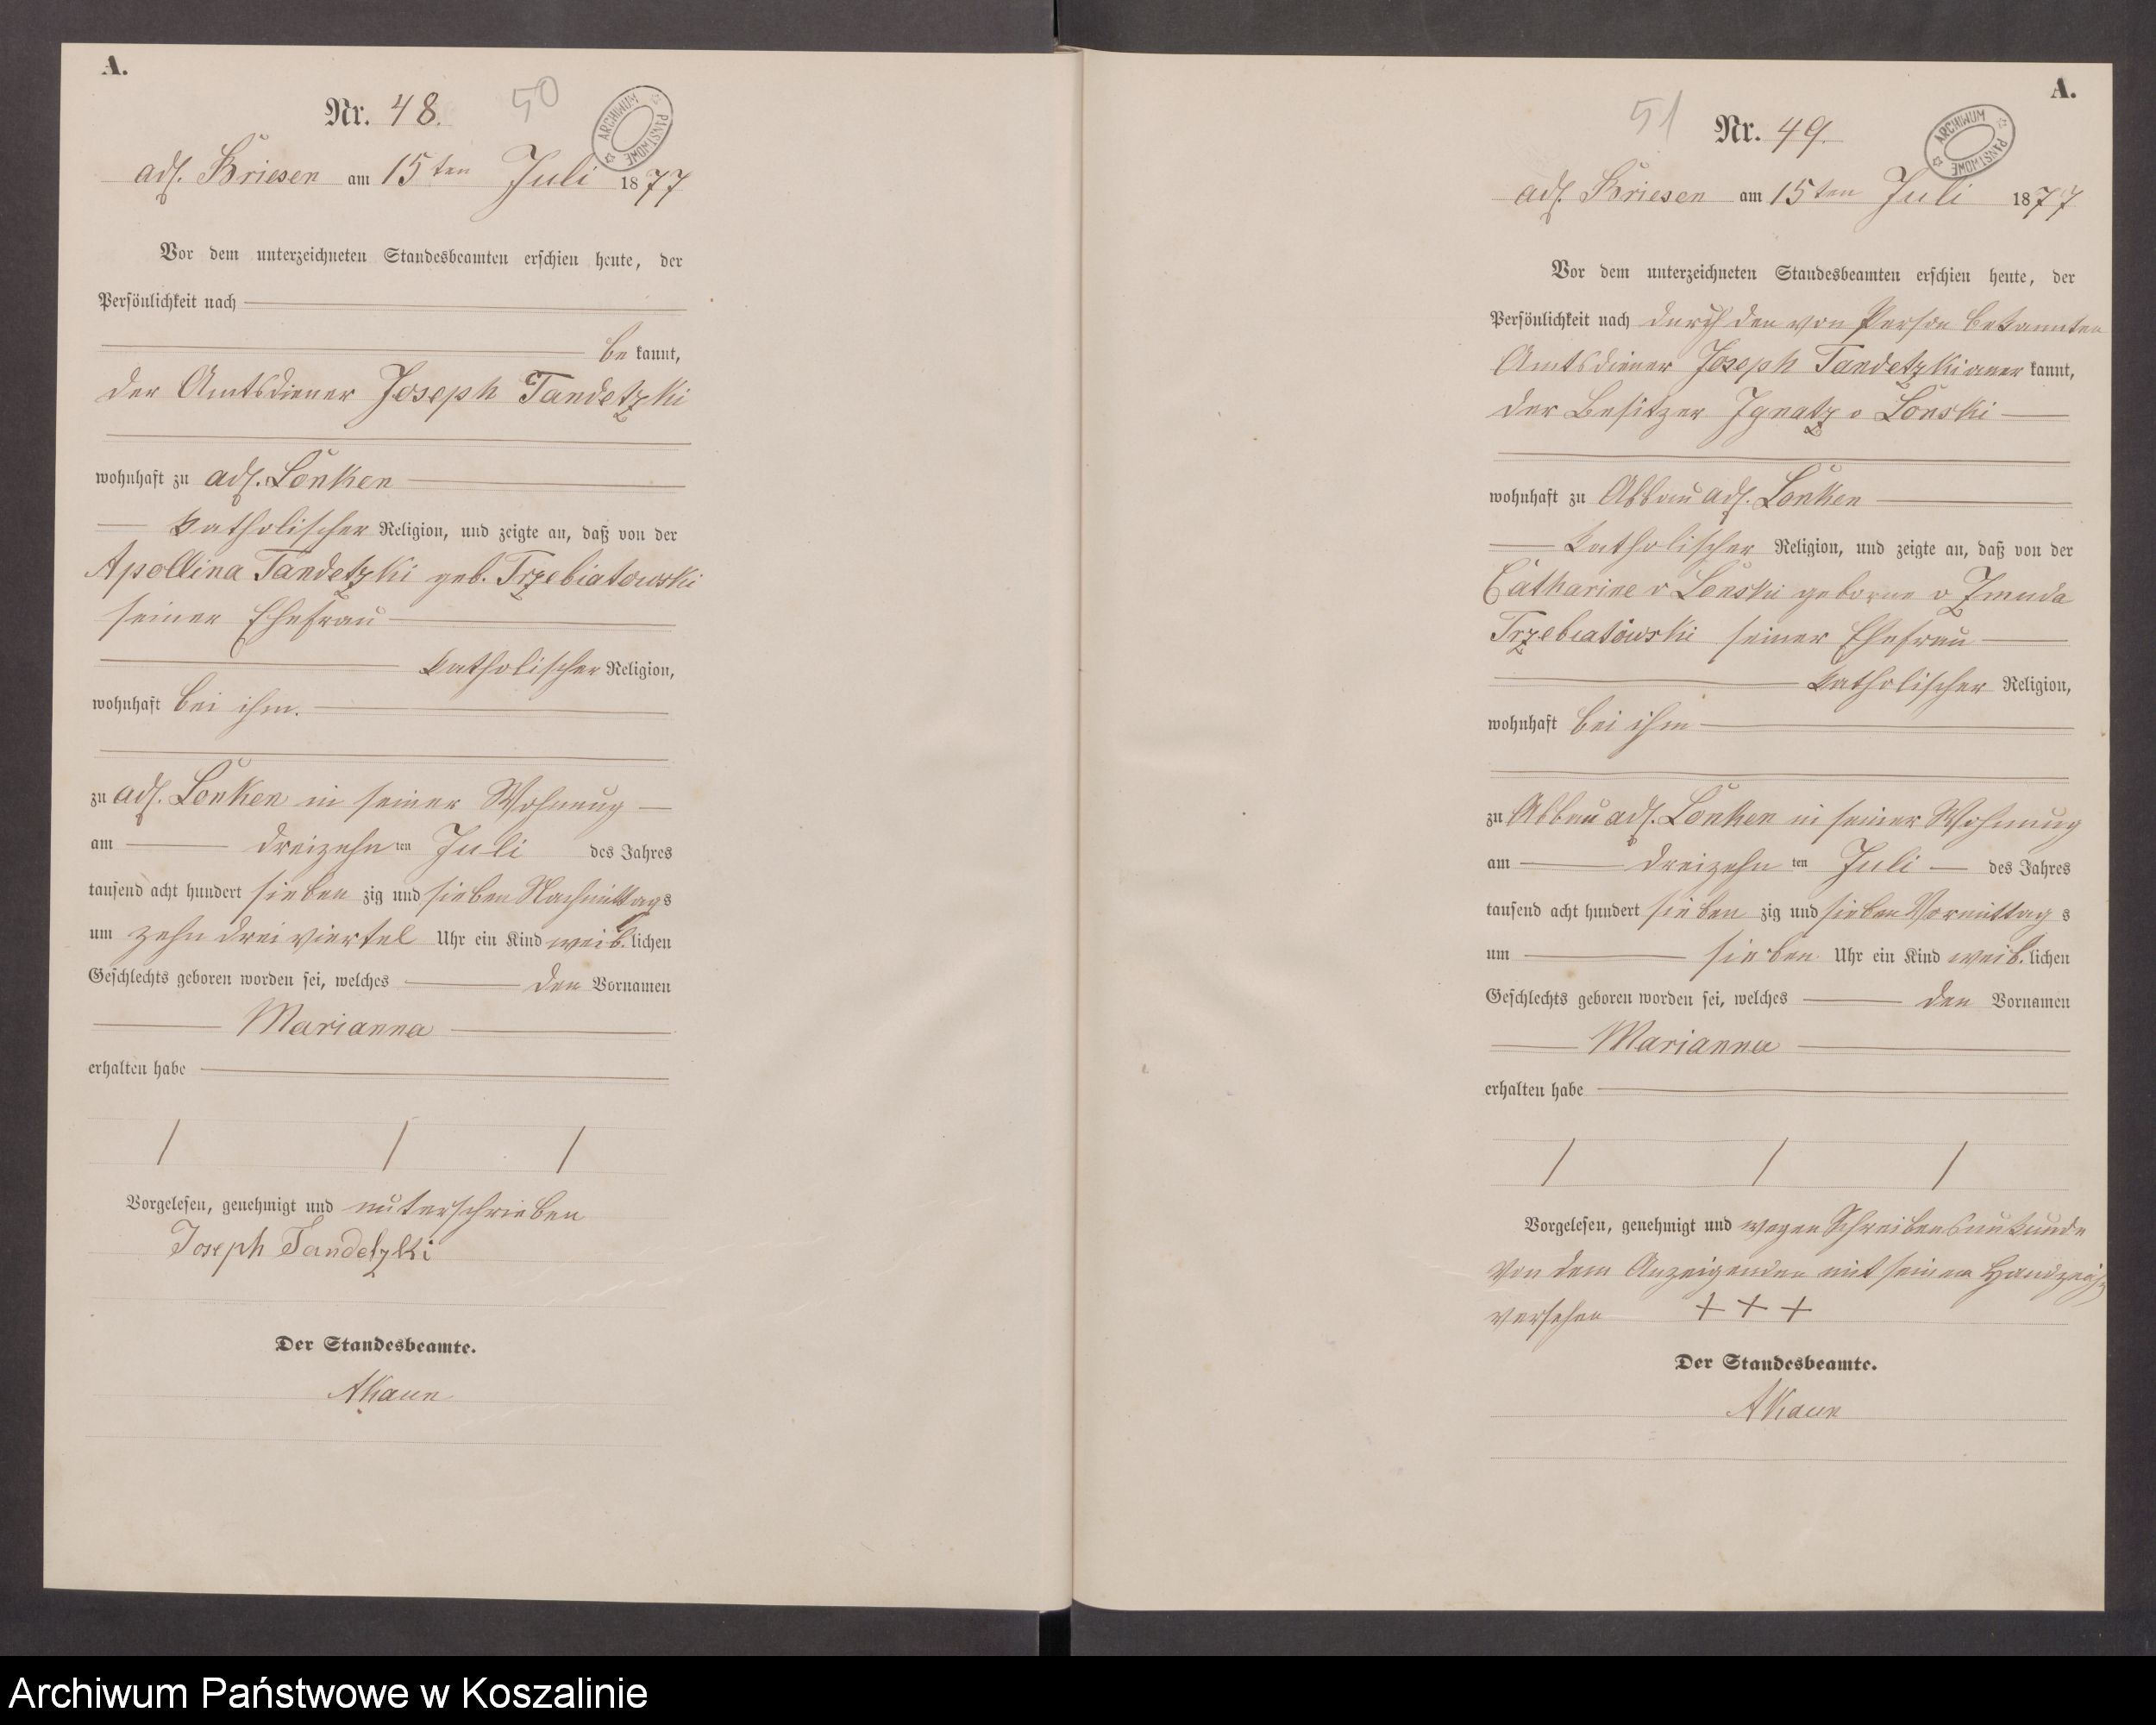 A.
Nr. 48. 50
ARCHIWUM PAŃSTWOWE
adl. Briesen am 15ten Juli 1877
Vor dem unterzeichneten Standesbeamten erschien heute, der
Persönlichkeit nach
be kannt,
der Amtsdiener Joseph Tandetzki
wohnhaft zu adl. Lonken
katholischer Religion, und zeigte an, daß von der
Apollina Tandetzki geb. Trzebiatowski
seiner Ehefrau
katholischer Religion,
wohnhaft bei ihm.
zu adl. Lonken in seiner Wohnung
am dreizehn ten Juli des Jahres
tausend acht hundert sieben zig und sieben Nachmittag s
um zehn dreiviertel Uhr ein Kind weib. lichen
Geschlechts geboren worden sei, welches den Vornamen
Marianna
erhalten habe
Vorgelesen, genehmigt und unterschrieben
Joseph Tandetzki
Der Standesbeamte.
AKaun
A.
51 Nr. 49.
ARCHIWUM PAŃSTWOWE
adl. Briesen am 15ten Juli 1877
Vor dem unterzeichneten Standesbeamten erschien heute, der
Persönlichkeit nach durch den von Person bekannten
Amtsdiener Joseph Tandetzki aner kannt,
der Besitzer Ignatz v Lonski
wohnhaft zu Abbau adl. Lonken
katholischer Religion, und zeigte an, daß von der
Catharine v Lonski geborne v Zmuda
Trzebiatowski seiner Ehefrau
katholischer Religion,
wohnhaft bei ihm
zu Abbau adl. Lonken in seiner Wohnung
am dreizehn ten Juli des Jahres
tausend acht hundert sieben zig und sieben Vormittag s
um sieben Uhr ein Kind weib. lichen
Geschlechts geboren worden sei, welches den Vornamen
Marianna
erhalten habe
Vorgelesen, genehmigt und wegen Schreibensunkunde
von dem Anzeigenden mit seinen
versehen + + +
Der Standesbeamte.
AKaun
Archiwum Państwowe w Koszalinie